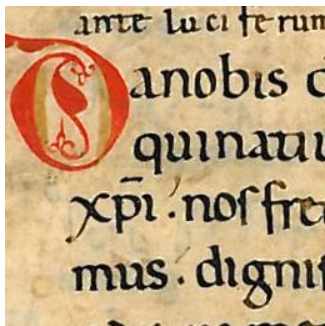 ante luciferum
Da nobis
qui natiu
xp̄i. nos fre
mus. dignit